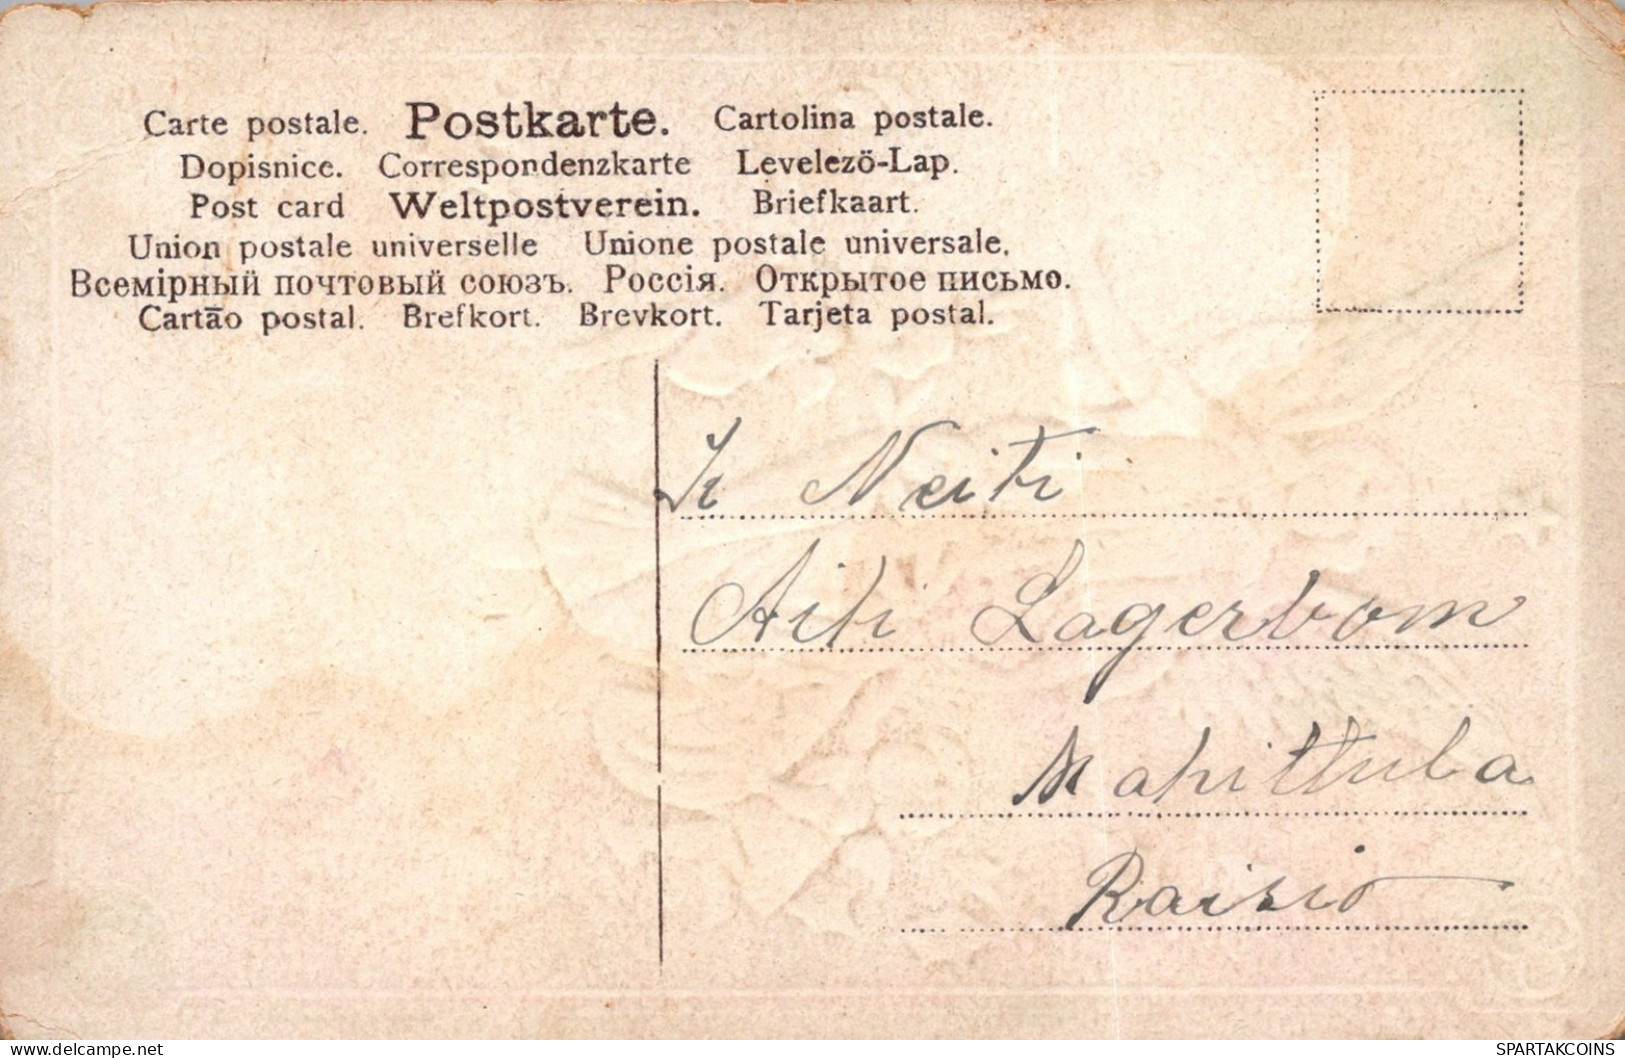 Carte postale. Postkarte. Cartolina postale.
Dopisnice. Correspondenzkarte Levelező-Lap.
Post card Weltpostverein. Briefkaart.
Union postale universelle Unione postale universale.
Всемірный почтовый союзъ. Россія. Открытое письмо.
Cartão postal. Brefkort. Brevkort. Tarjeta postal.
Neiti
Aili Lagerbom
Mahittula
Raisio
delcampe.net
website
SPARTAKCOINS